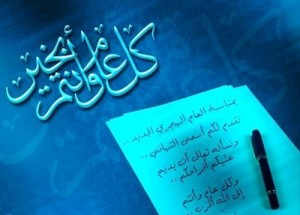 كل عام وأنتم بخير
بمناسبة العام الهجري الجديد..
نقدم لكم أسمى التهاني..
ونسأله تعالى أن يديم
عليكم أفراحكم..
وكل عام وأنتم
إلى الله أقرب..